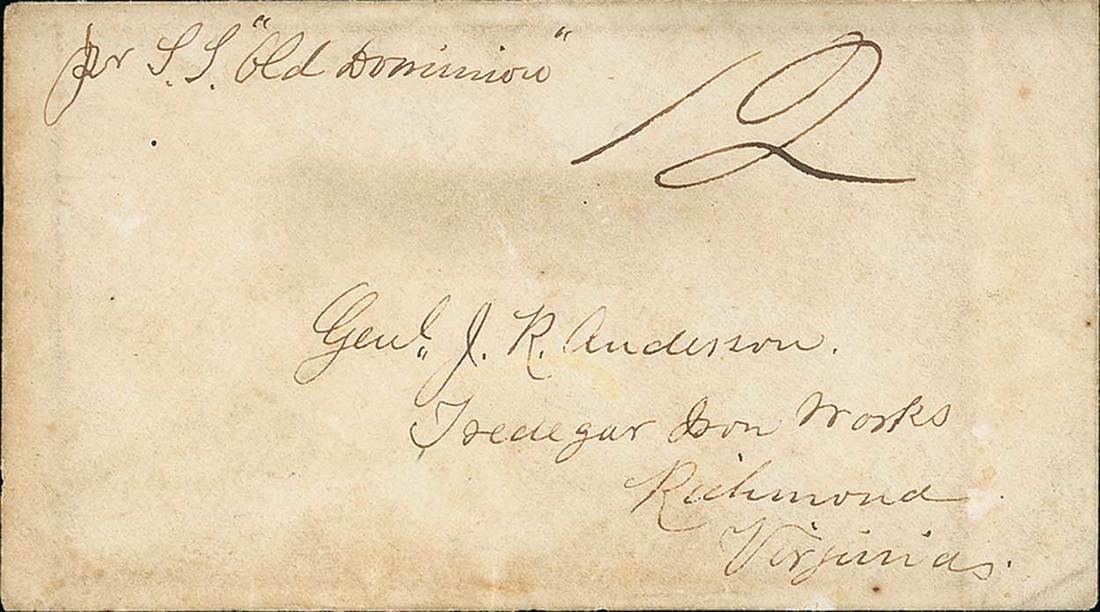 per S.S. "Old Dominion"
12
Genl. J. R. Anderson.
Tredegar Iron Works
Richmond
Virginia.